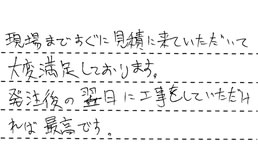 現場まですぐに見積に来ていただいて
大変満足しております。
発注後の翌日に工事をしていただけ
れば最高です。